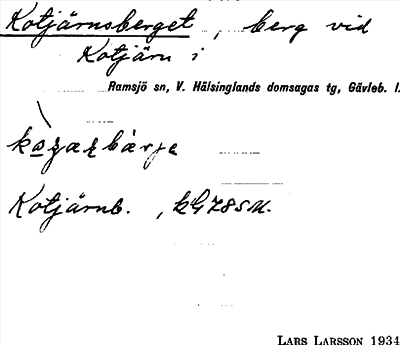 Kotjärnsberget, berg vid
Kotjärn i
Ramsjö sn, V. Hälsinglands domsagas tg, Gävleb. l.
Kotjärnb., kG 785 M.
LARS LARSSON 1934